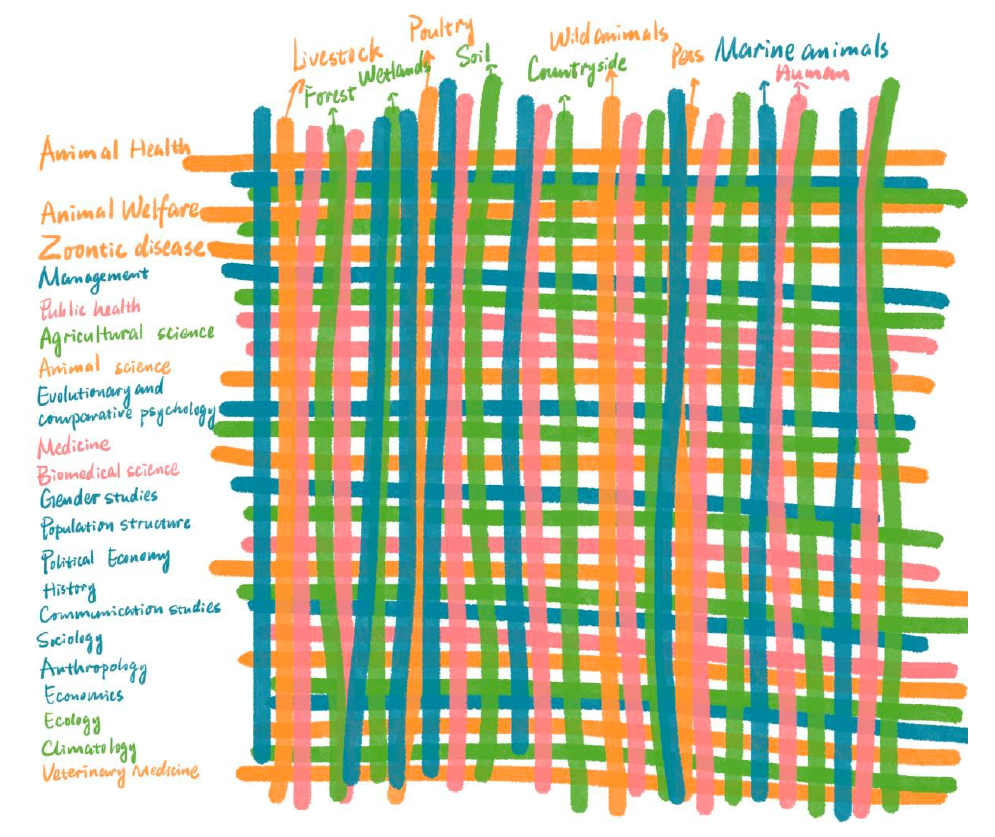 Poultry
Livestock
Wetlands
Soil
Wild animals
Marine animals
Forest
Countryside
Pets
Human
Animal Health
Animal Welfare
Zoontic disease
Management
Public health
Agricultural science
Animal science
Evolutionary and
comparative psychology
Medicine
Biomedical science
Gender studies
Population structure
Political Economy
History
Communication studies
Sociology
Anthropology
Economics
Ecology
Climatology
Veterinary Medicine